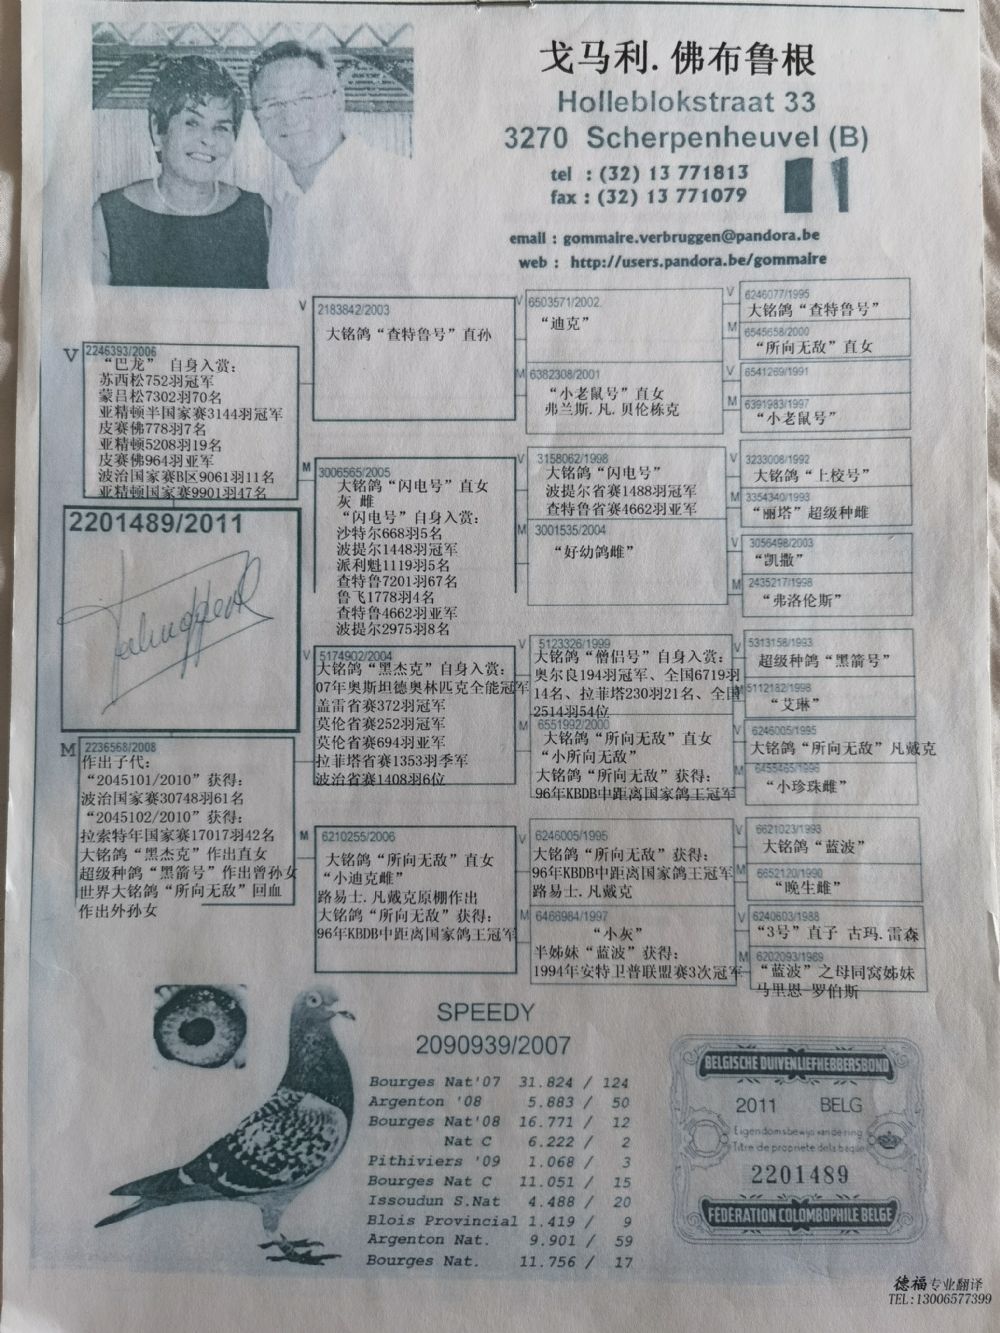 戈马利.佛布鲁根
Holleblokstraat 33
3270 Scherpenheuvel (B)
tel : (32) 13 771813
fax : (32) 13 771079
email : gommaire.verbruggen@pandora.be
web : http://users.pandora.be/gommaire
V
2246393/2006
“巴龙” 自身入赏:
苏西松752羽冠军
蒙吕松7302羽70名
亚精顿半国家赛3144羽冠军
皮赛佛778羽7名
亚精顿5208羽19名
皮赛佛964羽亚军
波治国家赛B区9061羽11名
亚精顿国家赛9901羽47名
2201489/2011
M
2236568/2008
作出子代:
“2045101/2010”获得:
波治国家赛30748羽61名
“2045102/2010”获得:
拉索特年国家赛17017羽42名
大铭鸽“黑杰克”作出直女
超级种鸽“黑箭号”作出曾孙女
世界大铭鸽“所向无敌”回血
作出外孙女
V
2183842/2003
大铭鸽“查特鲁号”直孙
M
3006565/2005
大铭鸽“闪电号”直女
灰 雌
“闪电号”自身入赏:
沙特尔668羽5名
波提尔1448羽冠军
派利魁1119羽5名
查特鲁7201羽67名
鲁飞1778羽4名
查特鲁4662羽亚军
波提尔2975羽8名
V
5174902/2004
大铭鸽“黑杰克”自身入赏:
07年奥斯坦德奥林匹克全能冠军
盖雷省赛372羽冠军
莫伦省赛252羽冠军
莫伦省赛694羽亚军
拉菲塔省赛1353羽季军
波治省赛1408羽6位
M
6210255/2006
大铭鸽“所向无敌”直女
“小迪克雌”
路易士.凡戴克原棚作出
大铭鸽“所向无敌”获得:
96年KBDB中距离国家鸽王冠军
V
6503571/2002
“迪克”
M
6382308/2001
“小老鼠号”直女
弗兰斯.凡.贝伦栋克
V
3158062/1998
大铭鸽“闪电号”
波提尔省赛1488羽冠军
查特鲁省赛4662羽亚军
M
3001535/2004
“好幼鸽雌”
V
5123326/1999
大铭鸽“僧侣号”自身入赏:
奥尔良194羽冠军、全国6719羽
14名、拉菲塔230羽21名、全国
2514羽54位
M
6551992/2000
大铭鸽“所向无敌”直女
“小所向无敌”
大铭鸽“所向无敌”获得:
96年KBDB中距离国家鸽王冠军
V
6246005/1995
大铭鸽“所向无敌”获得:
96年KBDB中距离国家鸽王冠军
路易士.凡戴克
M
6466984/1997
“小灰”
半姊妹“蓝波”获得:
1994年安特卫普联盟赛3次冠军
V
6246077/1995
大铭鸽“查特鲁号”
M
6545658/2000
“所向无敌”直女
V
6541269/1991
M
6391983/1997
“小老鼠号”
V
3233006/1992
大铭鸽“上校号”
M
3354340/1993
“丽塔”超级种雌
V
3056498/2003
“凯撒”
M
2435217/1998
“弗洛伦斯”
V
5313158/1993
超级种鸽“黑箭号”
M
5112182/1998
“艾琳”
V
6246005/1995
大铭鸽“所向无敌”凡戴克
M
6455465/1996
“小珍珠雌”
V
6621023/1993
大铭鸽“蓝波”
M
6652120/1990
“晚生雌”
V
6240603/1988
“3号”直子 古玛.雷森
M
6202093/1989
“蓝波”之母同窝姊妹
马里恩-罗伯斯
SPEEDY
2090939/2007
Bourges Nat'07 31.824 / 124
Argenton '08 5.883 / 50
Bourges Nat'08 16.771 / 12
Nat C 6.222 / 2
Pithiviers '09 1.068 / 3
Bourges Nat C 11.051 / 15
Issoudun S.Nat 4.488 / 20
Blois Provincial 1.419 / 9
Argenton Nat. 9.901 / 59
Bourges Nat. 11.756 / 17
BELGISCHE DUIVENLIEFHEBBERSBOND
2011 BELG
Eigendomsbewijs van de ring
Titre de propriete de la bague
2201489
FEDERATION COLOMBOPHILE BELGE
德福专业翻译
TEL:13006577399